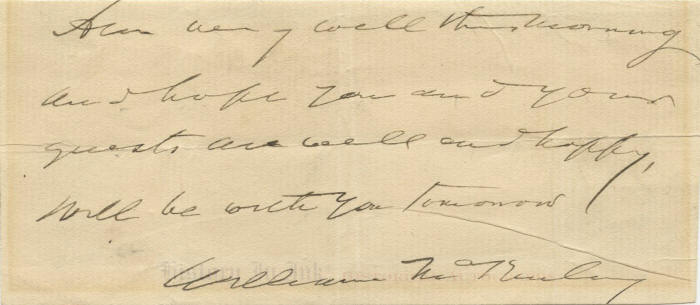 Am very well this morning
and hope you and your
guests are well and happy,
Will be with you tomorrow
William McKinley
History In Ink